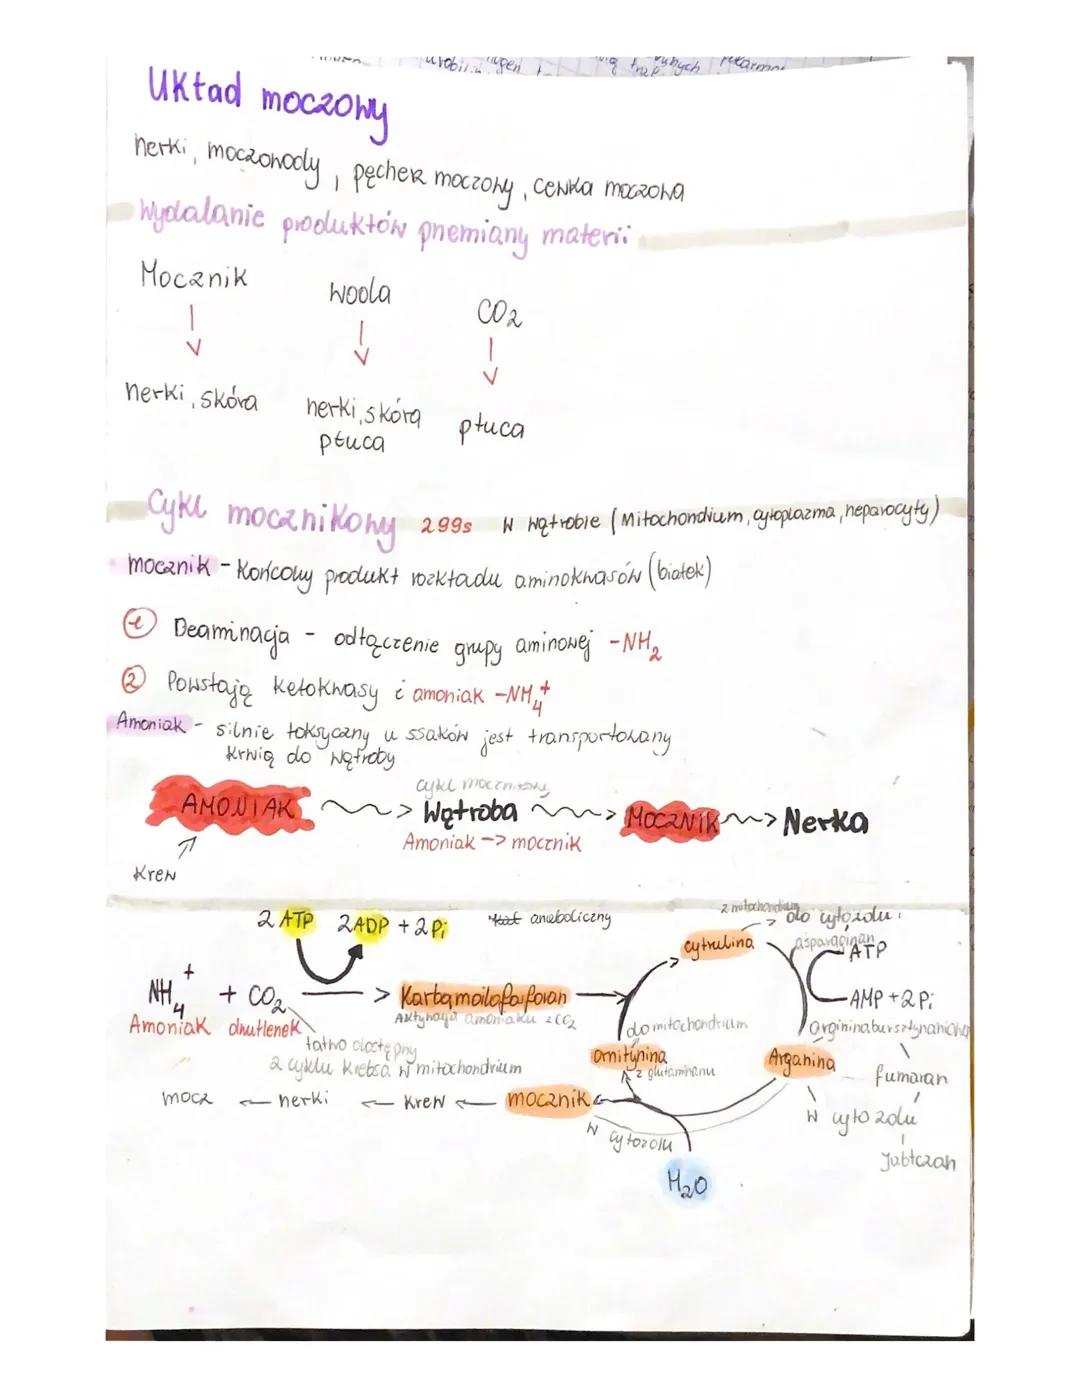 Układ moczowy
nerki, moczowody, pęcherz moczowy, cewka moczowa
Wydalanie produktów pnemiany materii
Mocznik
woda
CO2
nerki, skóra
nerki, skóra
płuca
płuca
Cykl mocznikowy 299s w wątrobie (Mitochondrium, cytoplazma, heparocyty)
mocznik - końcowy produkt rozkładu aminokwasów (białek)
1 Deaminacja - odłączenie grupy aminowej -NH2
2 Powstają ketokwasy i amoniak -NH4+
Amoniak - silnie toksyczny u ssaków jest transportowany
krwią do wątroby
cykl mocznikowy
AMONIAK ~> Wątroba ~> MOCZNIK ~> Nerka
Amoniak -> mocznik
Krew
2 ATP 2ADP + 2Pi anaboliczny
z mitochondrium do cytozolu
cytrulina
asparaginian
ATP
NH4+ + CO2 -> Karbamoilofosforan
AMP + 2Pi
Amoniak dwutlenek
Aktywacja amoniaku z CO2
do mitochondrium
argininobursztynianowa
łatwo dostępny
z cyklu krebsa w mitochondrium
Ornitynina
z glutaminanu
Arganina
fumaran
mocz <- nerki <- krew <- mocznik
w cytozolu
w cytozolu
jabłczan
H2O